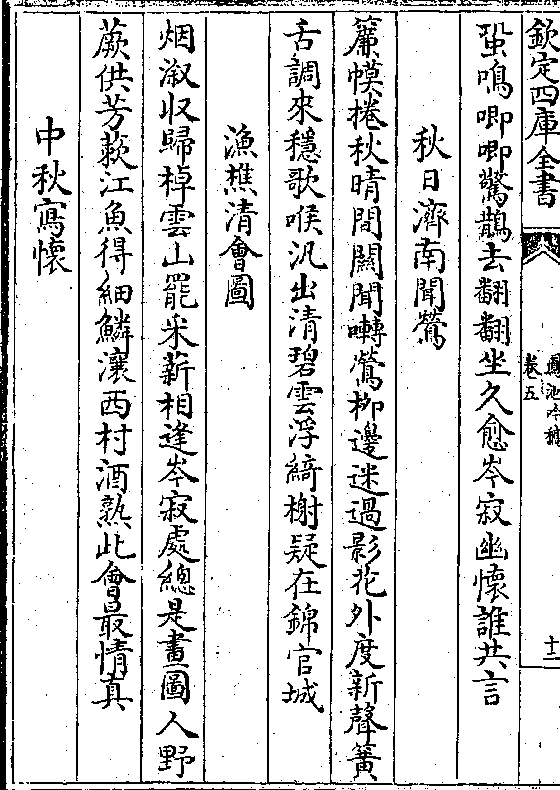 欽定四庫全書
鳳池吟稿
卷五
十二
蛩鳴唧唧驚鵲去翻翻坐久愈岑寂幽懷誰共言
秋日濟南聞鶯
簾幙捲秋晴間關聞囀鶯柳邊迷過影花外度新聲簧
舌調來穩歌喉汎出清碧雲浮綺榭疑在錦官城
漁樵清會圖
烟溆収歸棹雲山罷采薪相逢岑寂處總是畫圖人野
蕨供芳蔌江魚得細鱗瀼西村酒熟此會最情真
中秋寫懷